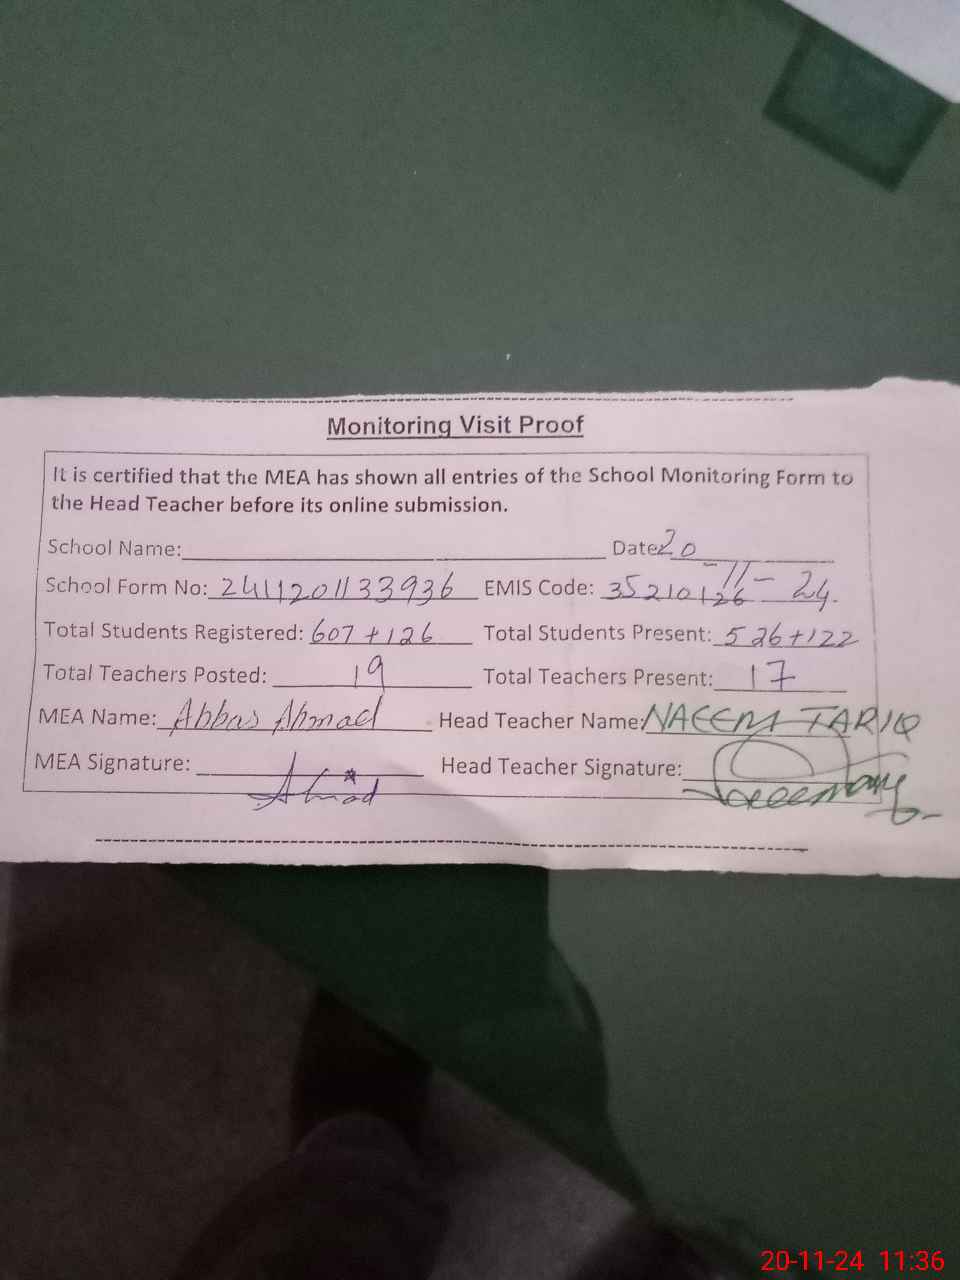 Monitoring Visit Proof
It is certified that the MEA has shown all entries of the School Monitoring Form to
the Head Teacher before its online submission.
School Name: Date: 20-11-24
School Form No: 241120113 3936 EMIS Code: 35210126
Total Students Registered: 607+126 Total Students Present: 526+122
Total Teachers Posted: 19 Total Teachers Present: 17
MEA Name: Abbas Ahmad Head Teacher Name: NAEEM TARIQ
MEA Signature: Ahmad Head Teacher Signature:
20-11-24 11:36